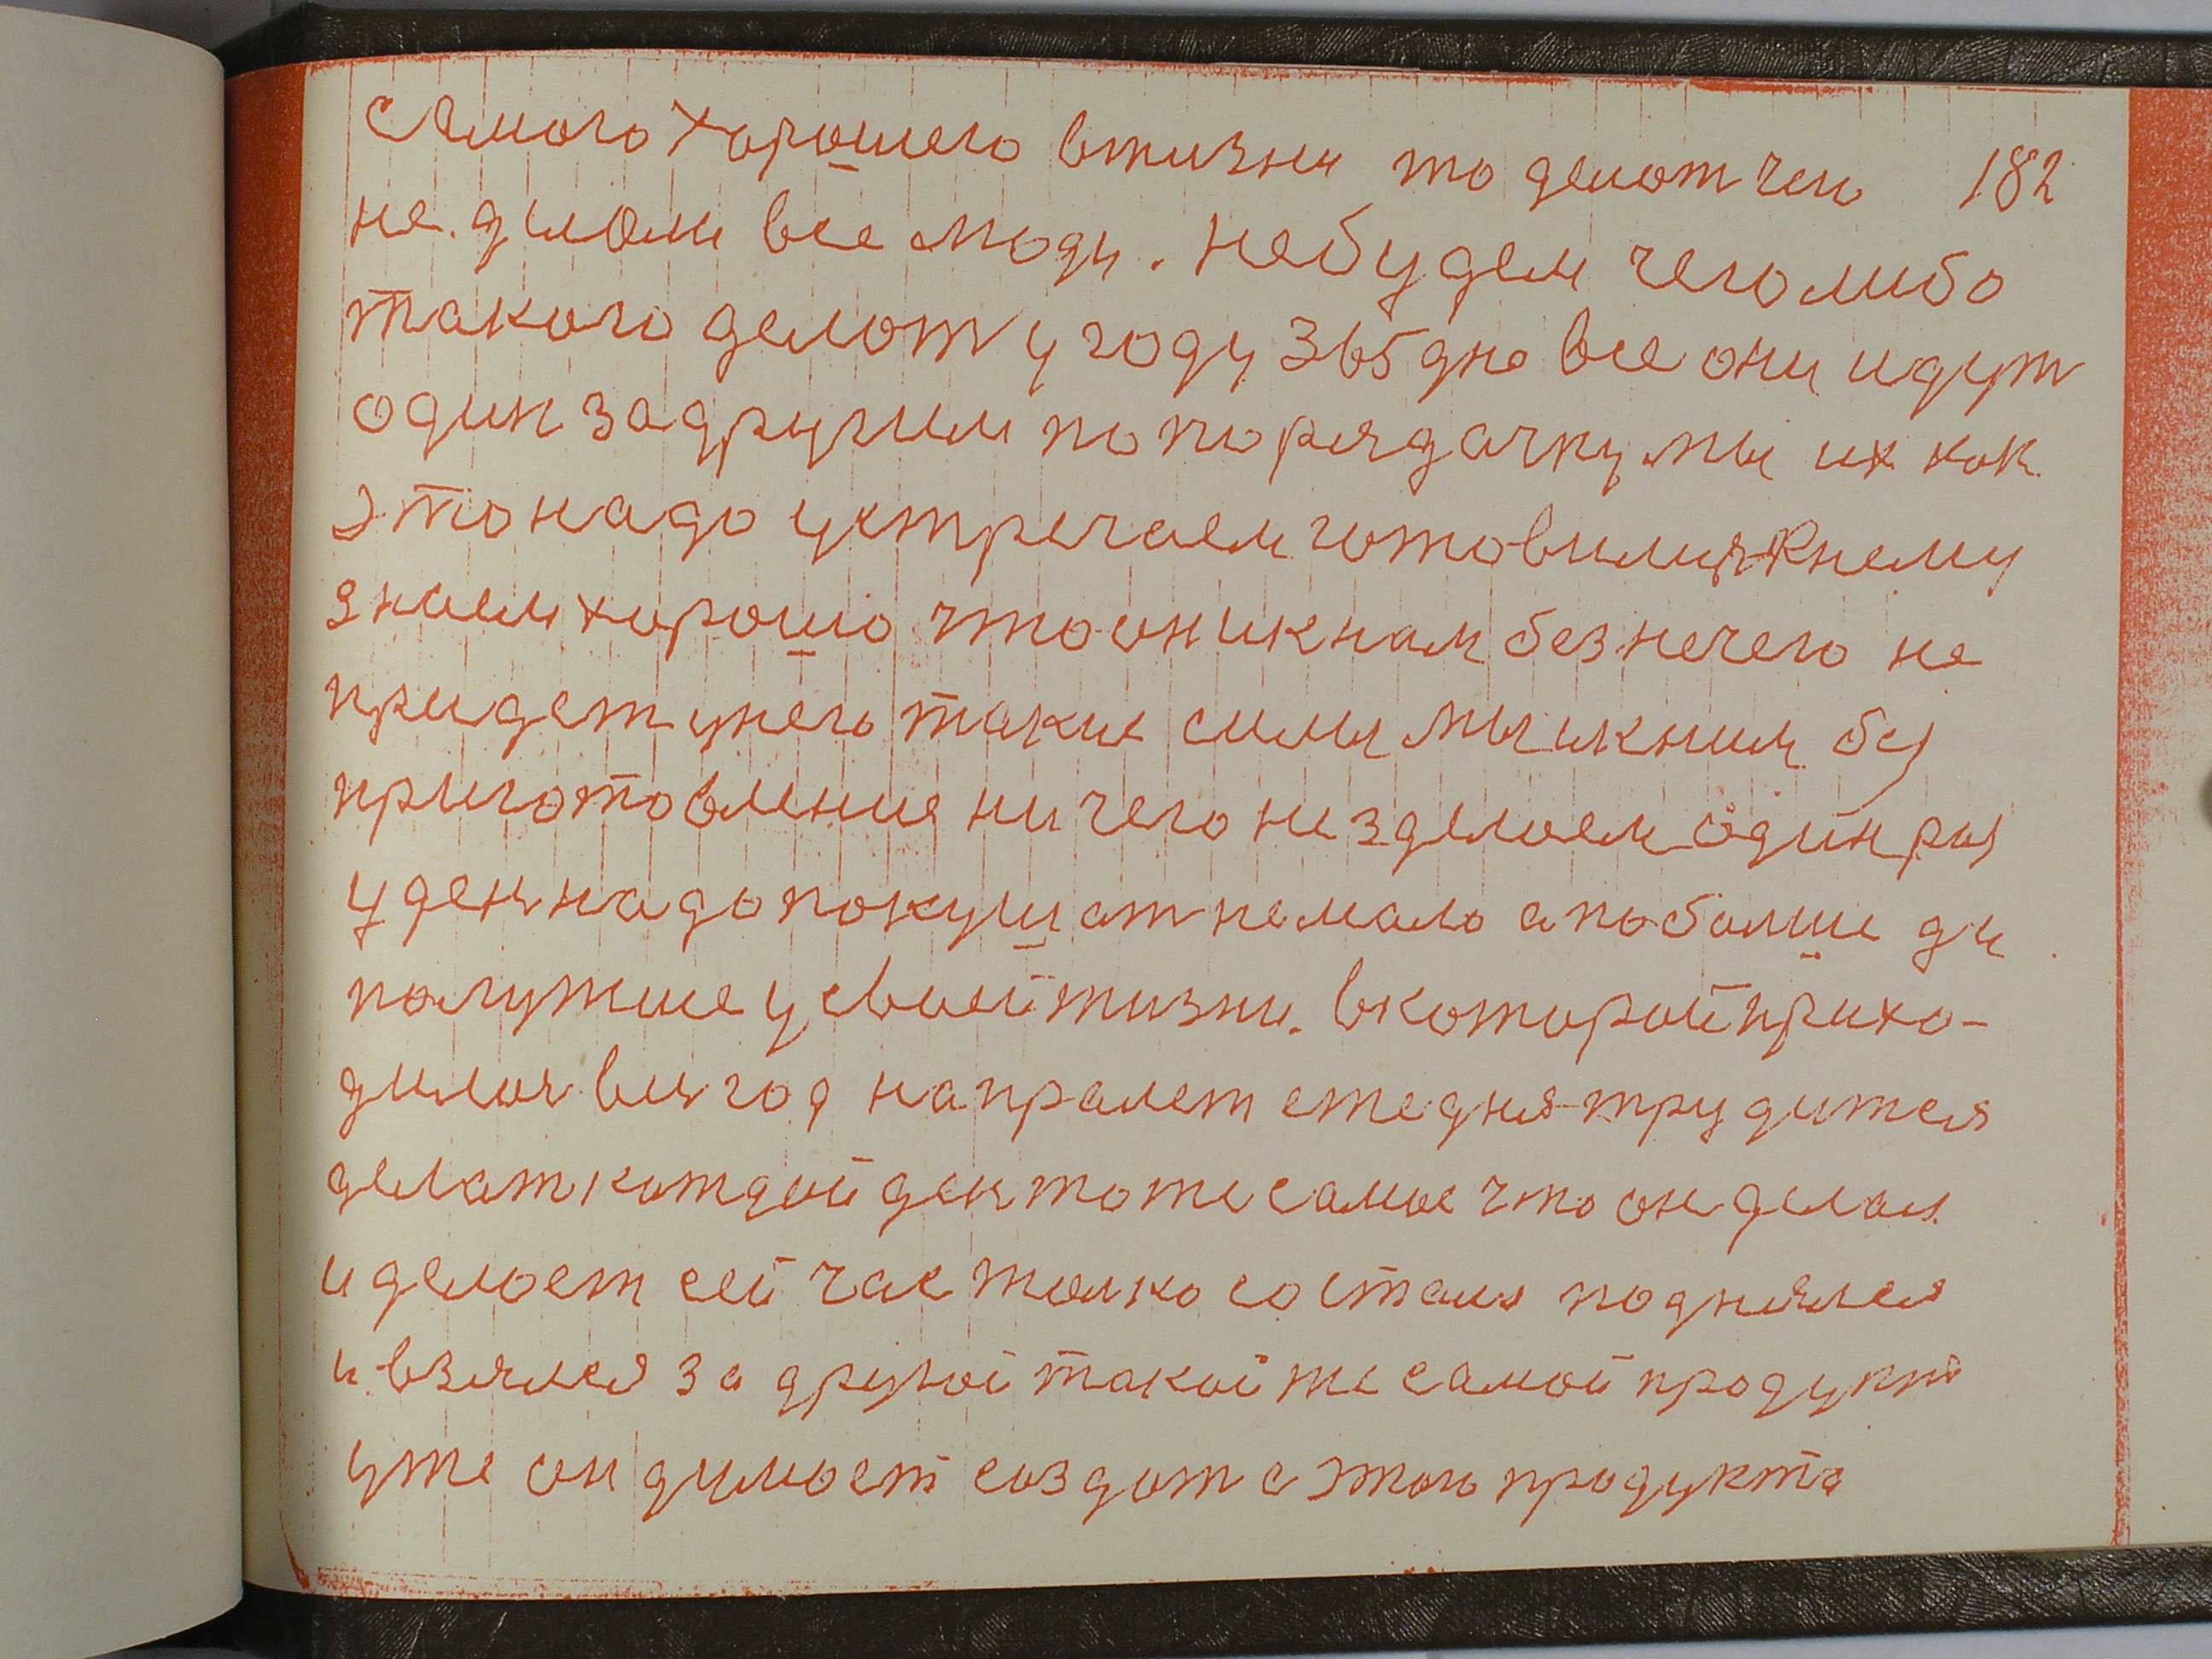 самого хорошего вжизни то делат чего 182
не делали все люди. Небудем чего либо
такого делат у году 365 дне все они идут
один задругим попорядачку мы их как
этонадо устречаем готовилися кнему
знаем хорошо что оникнам безнечего не
придет унего такие силы мы икним без
приготовление ни чего не зделаем один раз
у день надо покушат немало апобольше да
полутше у своей жизни. вкоторой прихо-
дилося весь год напралет ежедня трудится
делат каждой ден тоже самое что он делал
и делает сей час толко состаля поднялся
и взялся за другой такой же самой продукт
уже он думает создат с этого продукта